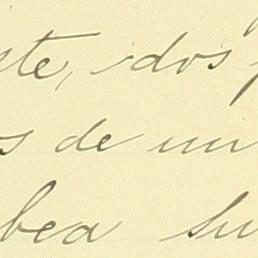 ste, dos
s de un
bea su